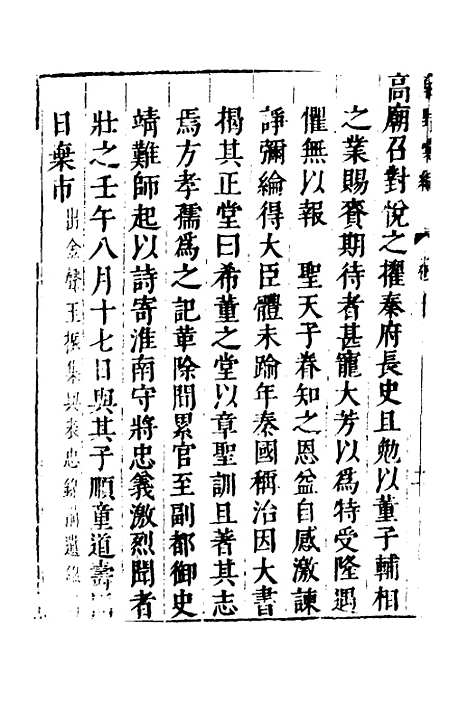 高廟召對悅之擢秦府長史且勉以董子輔相
之業賜賚期待者甚寵大芳以爲特受隆遇
懼無以報　聖天子眷知之恩益自感激諫
諍彌綸得大臣體未踰年秦國稱治因大書
揭其正堂曰希董之堂以章聖訓且著其志
焉方孝孺爲之記革除間累官至副都御史
靖難師起以詩寄淮南守將忠義激烈聞者
壯之壬午八月十七日與其子順童道壽
日棄市 出金聲玉振集與表忠錄前遺